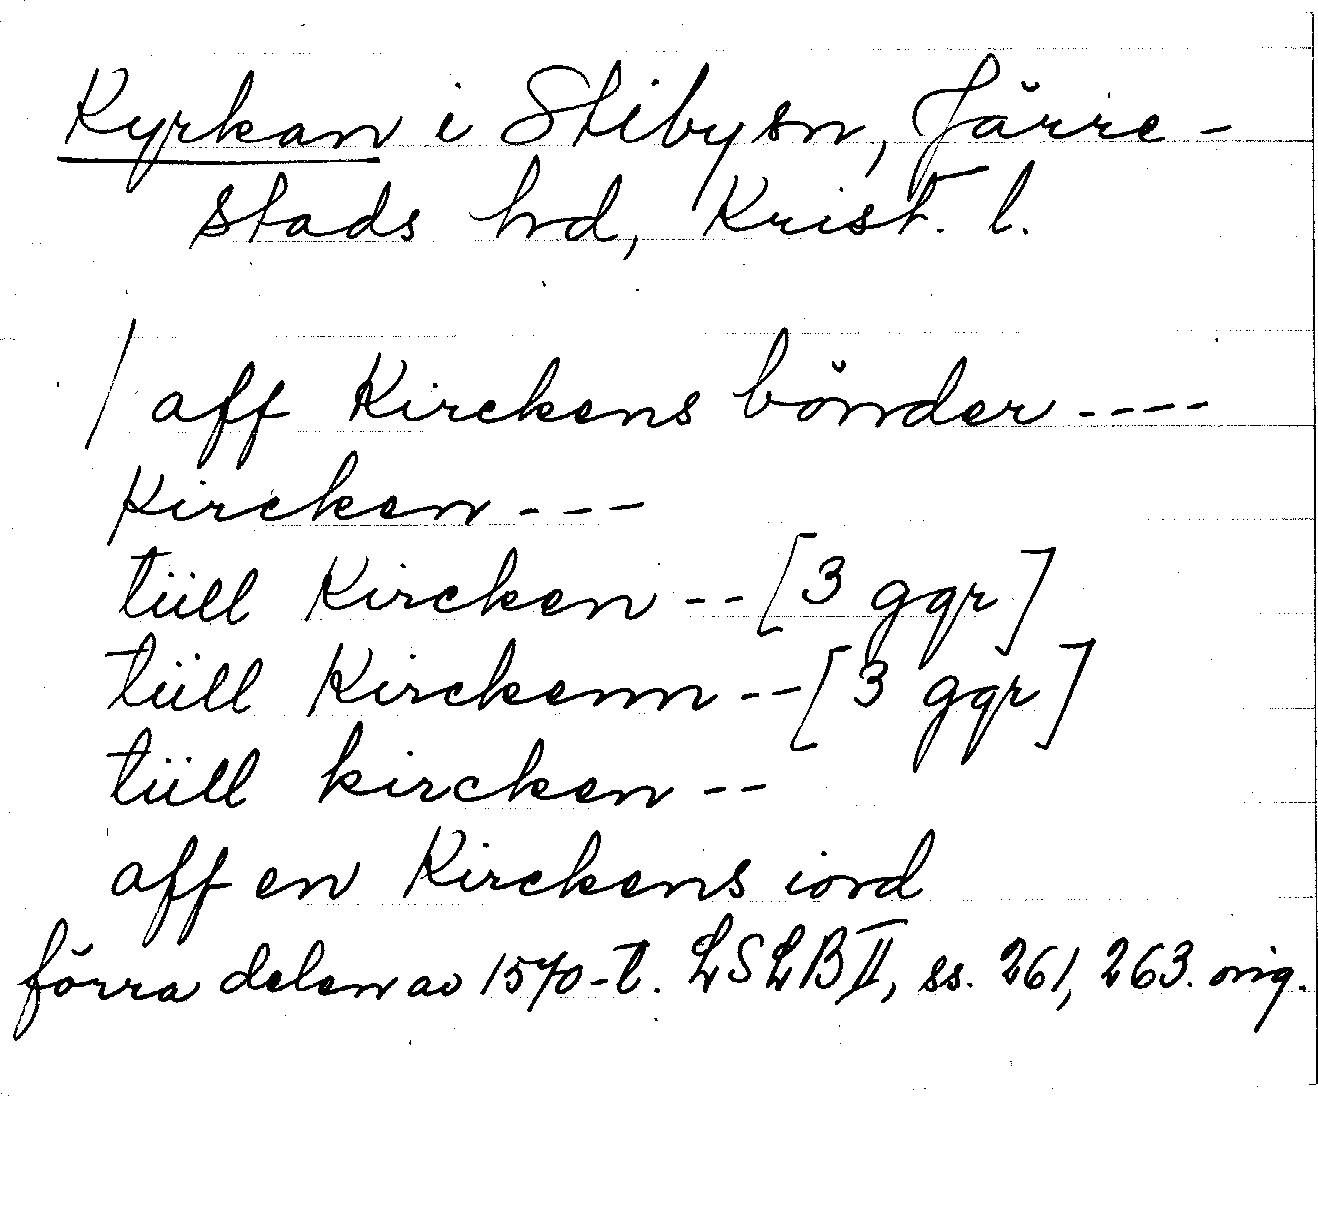 Kyrkan i Stiby sn, Järre-
stads hrd, Krist. l.
/ aff Kirckens bönder ----
Kircken ---
tüll Kircken -- [3 ggr]
tüll Kirckenn -- [3 ggr]
tüll kircken --
aff en Kirckens iord
förra delen av 1570-t. LSLB II, ss. 261, 263. orig.